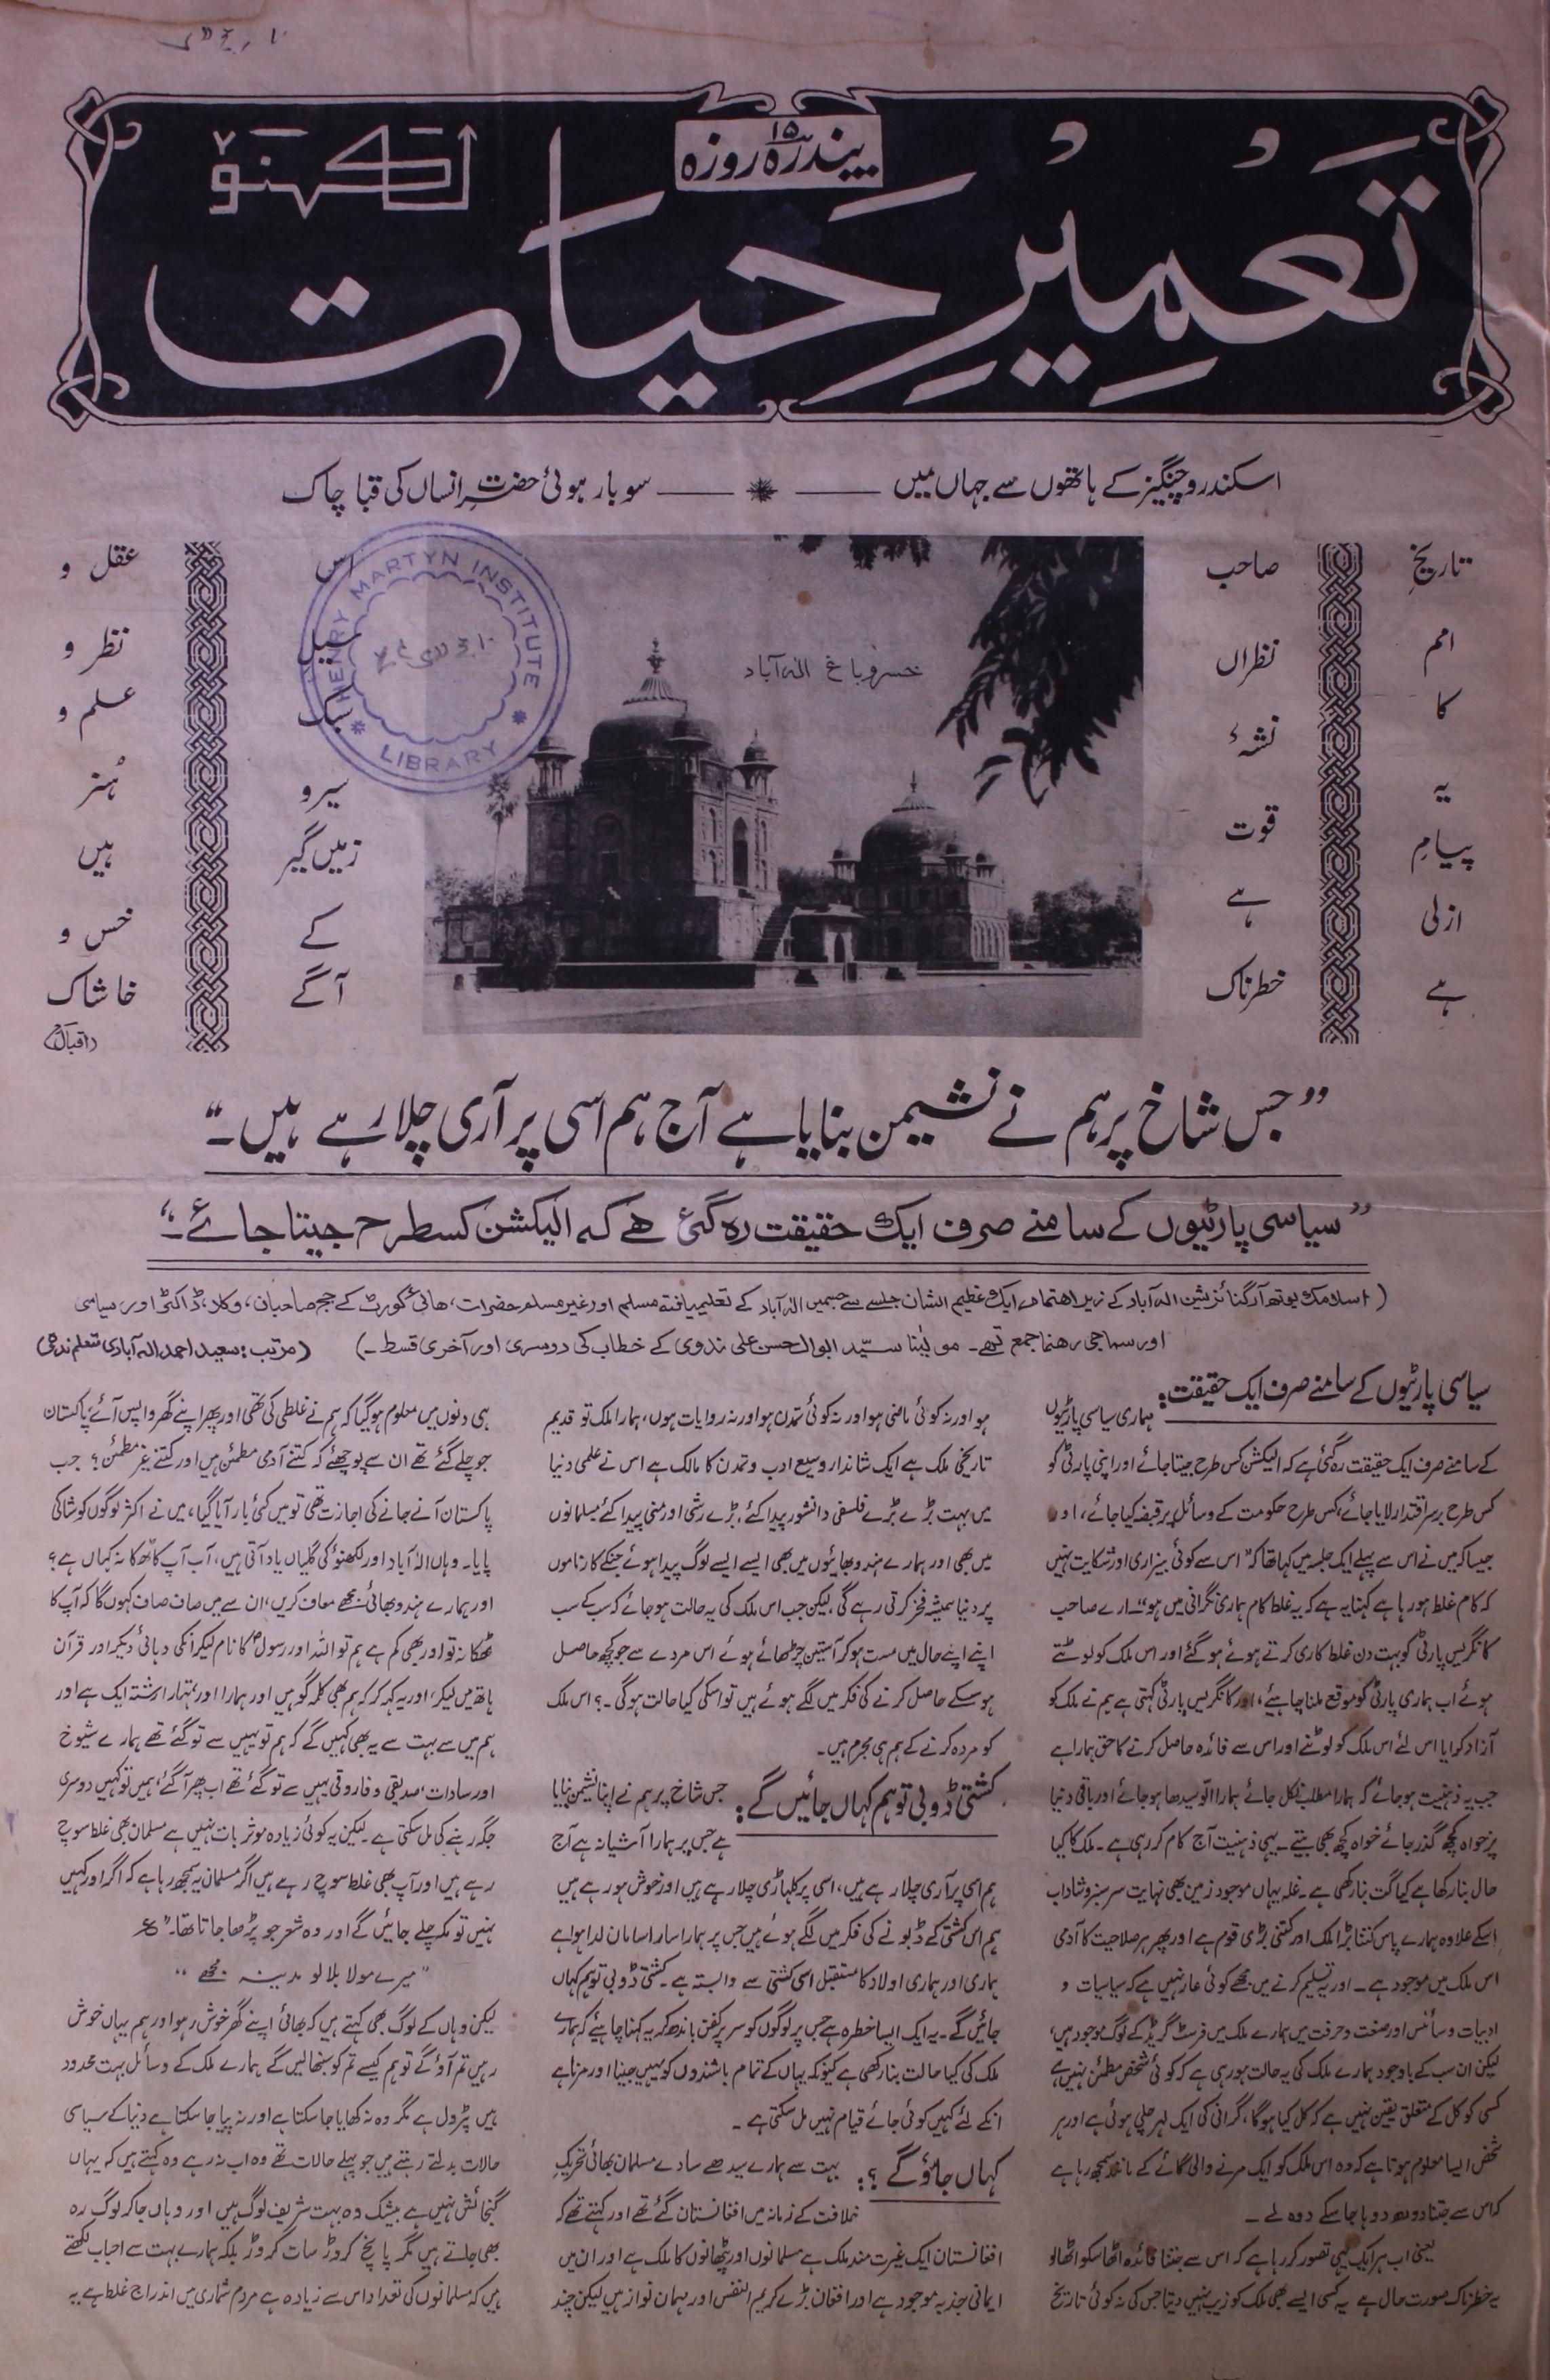 پندرہ ۱۵ روزہ
لکھنؤ
تَعمِیرِ حَیات
اسکندر و چنگیز کے ہاتھوں سے جہاں میں
سو بار ہوئی حضرتِ انساں کی قبا چاک
تاریخِ
امم
کا
یہ
پیامِ
ازلی
ہے
صاحب
نظراں
نشۂ
قوت
ہے
خطرناک
خسرو باغ الہ آباد
HENRY MARTYN INSTITUTE
LIBRARY
اس
سیل
سبک
سیر و
زمیں گیر
کے
آگے
عقل و
نظر و
علم و
ہُنر
ہیں
خس و
خاشاک
(اقبالؒ)
”جس شاخ پر ہم نے نشیمن بنایا ہے آج ہم اسی پر آری چلا رہے ہیں۔“
”سیاسی پارٹیوں کے سامنے صرف ایک حقیقت رہ گئی ہے کہ الیکشن کسطرح جیتا جائے۔“
(اسلامک یوتھ آرگنائزیشن الہ آباد کے زیر اہتمام ایک عظیم الشان جلسے سے جسمیں الہ آباد کے تعلیمیافتہ مسلم اور غیر مسلم حضرات، ہائی کورٹ کے جج صاحبان، وکلاء، ڈاکٹر اور سیاسی
اور سماجی رہنما جمع تھے۔ مولینا سیّد ابوالحسن علی ندوی کے خطاب کی دوسری اور آخری قسط۔) (مرتب: سعید احمد الہ آبادی متعلم ندوہ)
سیاسی پارٹیوں کے سامنے صرف ایک حقیقت: ہماری سیاسی پارٹیوں
کے سامنے صرف ایک حقیقت رہ گئی ہے کہ الیکشن کس طرح جیتا جائے اور اپنی پارٹی کو
کس طرح برسر اقتدار لایا جائے، کس طرح حکومت کے وسائل پر قبضہ کیا جائے، اور
جیسا کہ میں نے اس سے پہلے ایک جلسہ میں کہا تھا کہ ”اس سے کوئی بیزاری اور شکایت نہیں
کہ کام غلط ہو رہا ہے کہنا یہ ہے کہ یہ غلط کام ہماری نگرانی میں ہو“۔ ارے صاحب
کانگریس پارٹی کو بہت دن غلط کاری کرتے ہوئے ہو گئے اور اس ملک کو لوٹتے
ہوئے اب ہماری پارٹی کو موقع ملنا چاہیئے، اور کانگریس پارٹی کہتی ہے ہم نے ملک کو
آزاد کرایا اس لئے اس ملک کو لوٹنے اور اس سے فائدہ حاصل کرنے کا حق ہمارا ہے
جب یہ ذہنیت ہو جائے کہ ہمارا مطلب نکل جائے ہمارا الّو سیدھا ہو جائے اور باقی دنیا
پر خواہ کچھ گذر جائے خواہ کچھ بھی بیتے۔ یہی ذہنیت آج کام کر رہی ہے۔ ملک کا کیا
حال بنا رکھا ہے کیا گت بنا رکھی ہے۔ غلہ یہاں موجود زمین بھی نہایت سرسبز و شاداب
اسکے علاوہ ہمارے پاس کتنا بڑا ملک اور کتنی بڑی قوم ہے اور پھر ہر صلاحیت کا آدمی
اس ملک میں موجود ہے۔ اور یہ تسلیم کرنے میں مجھے کوئی عار نہیں ہے کہ سیاسیات و
ادبیات و سائنس اور صنعت و حرفت میں ہمارے ملک میں فرسٹ گریڈ کے لوگ موجود ہیں،
لیکن ان سب کے باوجود ہمارے ملک کی یہ حالت ہو رہی ہے کہ کوئی شخص مطمئن نہیں ہے
کسی کو کل کے متعلق یقین نہیں ہے کہ کل کیا ہوگا، گرانی کی ایک لہر چلی ہوئی ہے اور ہر
شخص ایسا معلوم ہوتا ہے کہ وہ اس ملک کو ایک مرنے والی گائے کے مانند سمجھ رہا ہے
کہ اس سے جتنا دودھ دوہا جا سکے دوہ لے۔
یعنی اب ہر ایک یہی تصور کر رہا ہے کہ اس سے جتنا فائدہ اٹھا سکو اٹھا لو
یہ خطرناک صورت حال ہے یہ کسی ایسے بھی ملک کو زیب نہیں دیتا جس کی نہ کوئی تاریخ
ہو اور نہ کوئی ماضی ہو اور نہ کوئی تمدن ہو اور نہ روایات ہوں، ہمارا ملک تو قدیم
تاریخی ملک ہے ایک شاندار وسیع ادب و تمدن کا مالک ہے اس نے علمی دنیا
میں بہت بڑے بڑے فلسفی دانشور پیدا کئے، بڑے رشی اور منی پیدا کئے مسلمانوں
میں بھی اور ہمارے ہندو بھائیوں میں بھی ایسے ایسے لوگ پیدا ہوئے جنکے کارناموں
پر دنیا ہمیشہ فخر کرتی رہے گی، لیکن جب اس ملک کی یہ حالت ہو جائے کہ سب کے سب
اپنے اپنے حال میں مست ہو کر آستین چڑھائے ہوئے اس مردے سے جو کچھ حاصل
ہو سکے حاصل کرنے کی فکر میں لگے ہوئے ہیں تو اسکی کیا حالت ہوگی۔؟ اس ملک
کو مردہ کرنے کے ہم ہی مجرم ہیں۔
کشتی ڈوبی تو ہم کہاں جائیں گے: جس شاخ پر ہم نے اپنا نشیمن بنایا
ہے جس پر ہمارا آشیانہ ہے آج
ہم اسی پر آری چلا رہے ہیں، اسی پر کلہاڑی چلا رہے ہیں اور خوش ہو رہے ہیں
ہم اس کشتی کے ڈبونے کی فکر میں لگے ہوئے ہیں جس پر ہمارا سارا سامان لدا ہوا ہے
ہماری اور ہماری اولاد کا مستقبل اسی کشتی سے وابستہ ہے۔ کشتی ڈوبی تو ہم کہاں
جائیں گے۔ یہ ایک ایسا خطرہ ہے جس پر لوگوں کو سر پر کفن باندھ کر یہ کہنا چاہیئے کہ ہمارے
ملک کی کیا حالت بنا رکھی ہے کیونکہ یہاں کے تمام باشندوں کو یہیں جینا اور مرنا ہے
انکے لئے کہیں کوئی جائے قیام نہیں مل سکتی ہے۔
کہاں جاؤ گے؟: بہت سے ہمارے سیدھے سادے مسلمان بھائی تحریکِ
خلافت کے زمانہ میں افغانستان گئے تھے اور کہتے تھے کہ
افغانستان ایک غیرت مند ملک ہے مسلمانوں اور پٹھانوں کا ملک ہے اور ان میں
ایمانی جذبہ موجود ہے اور افغان بڑے کریم النفس اور مہمان نواز ہیں لیکن چند
ہی دنوں میں معلوم ہو گیا کہ ہم نے غلطی کی تھی اور پھر اپنے گھر واپس آئے، پاکستان
جو چلے گئے تھے ان سے پوچھئے کہ کتنے آدمی مطمئن ہیں اور کتنے غیر مطمئن؟ جب
پاکستان آنے جانے کی اجازت تھی تو میں کئی بار آیا گیا، میں نے اکثر لوگوں کو شاکی
پایا۔ وہاں الہ آباد اور لکھنؤ کی گلیاں یاد آتی ہیں، آپ کا ٹھکانہ کہاں ہے؟
اور ہمارے ہندو بھائی مجھے معاف کریں، ان سے میں صاف صاف کہوں گا کہ آپ کا
ٹھکانہ تو اور بھی کم ہے ہم تو اللہ اور رسولؐ کا نام لیکر انکی دہائی دیکر اور قرآن
ہاتھ میں لیکر، اور یہ کہہ کر کہ ہم بھی کلمہ گو ہیں اور ہمارا اور تمہارا رشتہ ایک ہے اور
ہم میں سے بہت سے یہ بھی کہیں گے کہ ہم تو یہیں سے تو گئے تھے ہمارے شیوخ
اور سادات، صدیقی و فاروقی یہیں سے تو گئے تھے اب پھر آگئے، ہمیں تو کہیں دوسری
جگہ رہنے کی مل سکتی ہے۔ لیکن یہ کوئی زیادہ موثر بات نہیں ہے مسلمان بھی غلط سوچ
رہے ہیں اور آپ بھی غلط سوچ رہے ہیں اگر مسلمان یہ سمجھ رہا ہے کہ اگر اور کہیں
نہیں تو مکہ چلے جائیں گے اور وہ شعر جو پڑھا جاتا تھا۔“ ع
”میرے مولا بلالو مدینہ مجھے“
لیکن وہاں کے لوگ بھی کہتے ہیں کہ بھائی اپنے گھر خوش رہو اور ہم یہاں خوش
رہیں تم آؤ گے تو ہم کیسے تم کو سنبھالیں گے ہمارے ملک کے وسائل بہت محدود
ہیں پٹرول ہے مگر وہ نہ کھایا جا سکتا ہے اور نہ پیا جا سکتا ہے دنیا کے سیاسی
حالات بدلتے رہتے ہیں جو پہلے حالات تھے وہ اب نہ رہے وہ کہتے ہیں کہ یہاں
گنجائش نہیں ہے بیشک وہ بہت شریف لوگ ہیں اور وہاں جاکر لوگ رہ
بھی جاتے ہیں مگر پانچ کروڑ سات کروڑ بلکہ ہمارے بہت سے احباب لکھتے
ہیں کہ مسلمانوں کی تعداد اس سے زیادہ ہے مردم شماری میں اندراج غلط ہے یہ